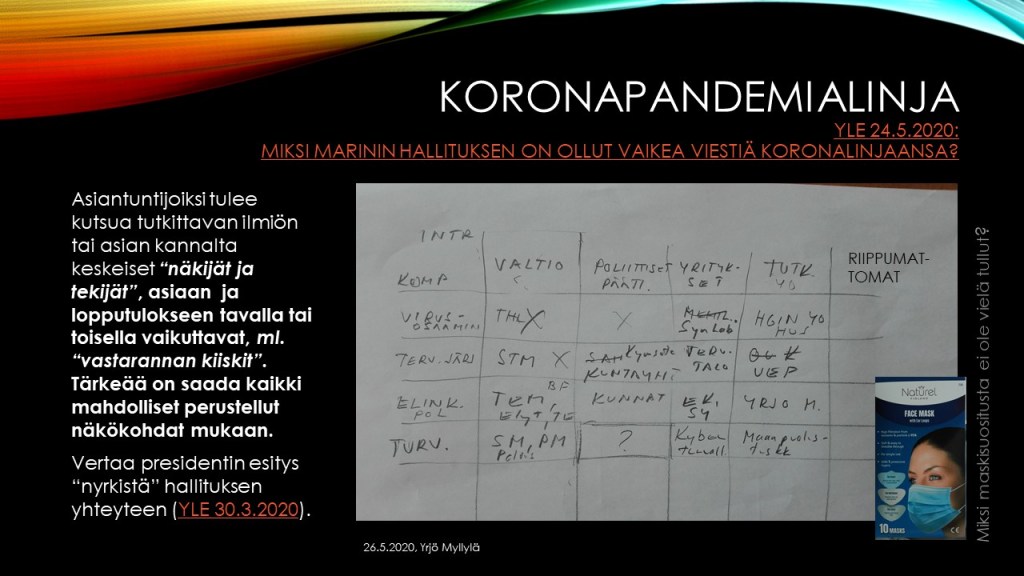 KORONAPANDEMIALINJA
YLE 24.5.2020:
MIKSI MARININ HALLITUKSEN ON OLLUT VAIKEA VIESTIÄ KORONALINJAANSA?
Asiantuntijoiksi tulee
kutsua tutkittavan ilmiön
tai asian kannalta
keskeiset “näkijät ja
tekijät”, asiaan ja
lopputulokseen tavalla tai
toisella vaikuttavat, ml.
“vastarannan kiiskit”.
Tärkeää on saada kaikki
mahdolliset perustellut
näkökohdat mukaan.
Vertaa presidentin esitys
“nyrkistä” hallituksen
yhteyteen (YLE 30.3.2020).
INTR
KOMP
VALTIO
POLIITTISET
PÄÄTT.
YRITYK-
SET
TUTK.
YO
RIIPPUMAT-
TOMAT
VIRUS-
OSAAMIN
THL X
X
SynLab
HGIN YO
HUS
TERV. JÄRJ
STM X
KUNTAYHT
TERV.
TALO
UEF
ELINK.
POL
TEM,
ELYT, TE
KUNNAT
EK,
SY
YRJÖ M.
TURV.
SM, PM
?
Maanpuolus-
Naturel
FACE MASK
10 MASKS
CE
Miksi maskisuositusta ei ole vielä tullut?
26.5.2020, Yrjö Myllylä